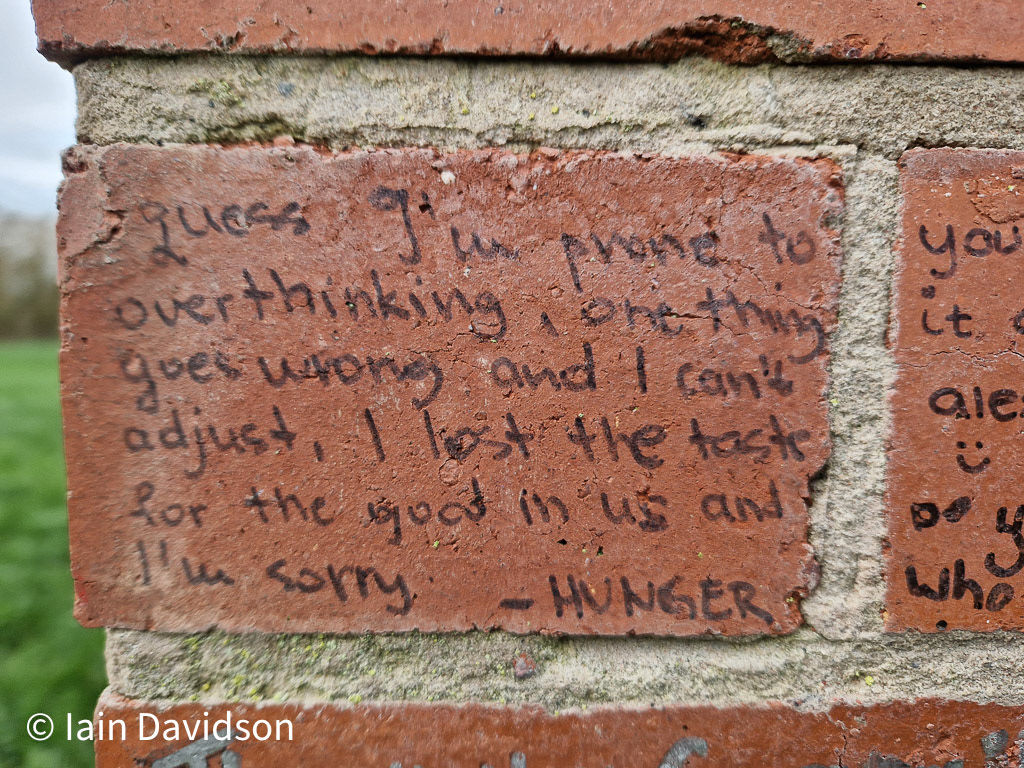 guess I'm prone to
overthinking, one thing
goes wrong and I can't
adjust, I lost the taste
for the good in us and
I'm sorry. -HUNGER
you
it
ales
:)
who
© Iain Davidson